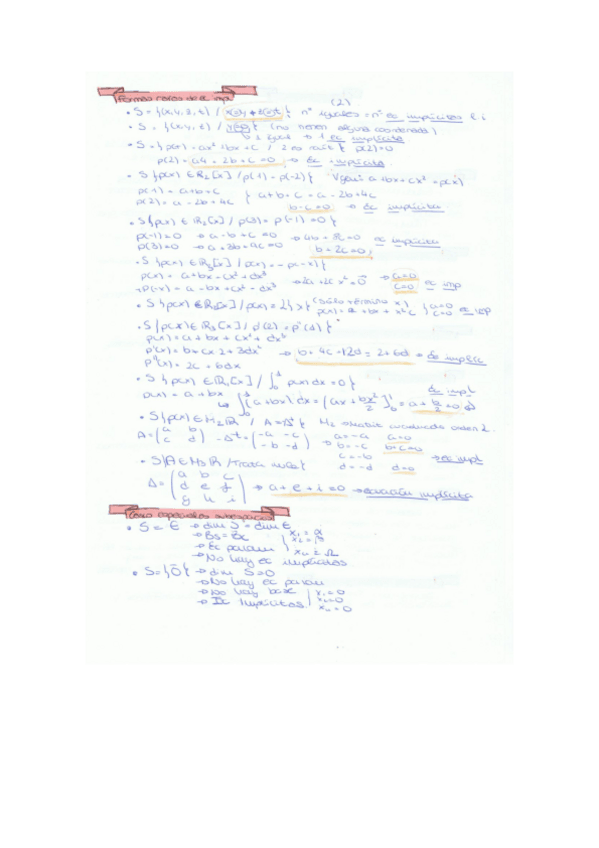 Formas raras de ec imp.
(2)
• S = {(x, y, z, t) / x=y=z=t} nº iguales = nº ec implícitas
• S = {(x, y, t) / (no tienen alguna coordenada)
→ 1 ec implícita
• S = {p(x) = ax² + bx + c / 2 es raíz} p(2)=0
p(2) = a4 + 2b + c = 0 → Ec implícita
• S {p(x) ∈ R₂[x] / p(1) = p(-2)} a + bx + cx² = p(x)
p(1) = a+b+c } a+b+c = a-2b+4c
p(2) = a - 2b + 4c b-c=0 → Ec implícita
• S {p(x) ∈ R₂[x] / p(3) = p(-1) = 0}
p(-1)=0 → a-b+c=0 → 4b + 8c=0 ec implícita
p(3)=0 → a+3b+9c=0 b+2c=0
• S {p(x) ∈ R₃[x] / p(x) = -p(-x)}
p(x) = a + bx + cx² + dx³
+p(-x) = a - bx + cx² - dx³ → 2a + 2c x² = 0 → a=0 c=0 ec imp
• S {p(x) ∈ R₂[x] / (Sólo término x)
p(x) = a + bx + x²c } a=0 c=0 ec imp
• S {p(x) ∈ R₃[x] / p'(2) = p''(1)}
p(x) = a + bx + cx² + dx³
p'(x) = b + cx2 + 3dx² → b + 4c + 12d = 2c + 6d → ec implíc
p''(x) = 2c + 6dx
• S {p(x) ∈ R₁[x] / ∫₀¹ p(x) dx = 0}
p(x) = a + bx ec impl
↳ ∫₀¹ (a+bx) dx = (ax + bx²/2]₀¹ = a + b/2 = 0
• S {p(x) ∈ M₂ R / A = -Aᵗ} M₂ cuadrada orden 2
A = (a b / c d) -Aᵗ = (-a -c / -b -d) → a=-a a=0
b=-c b+c=0
c=-b → ec impl
d=-d d=0
• S {A ∈ M₃ R / traza nula}
A = (a b c
d e f → a+e+i=0 → ecuación implícita
g h i)
Casos especiales subespacios
• S = E → dim S = dim E
→ Bs = Bc
→ Ec param
→ No hay ec implícitas
• S = {0} → dim S=0
→ No hay ec param
→ No hay base x₁=0
→ Ec Implícitas. x₂=0
xₙ=0